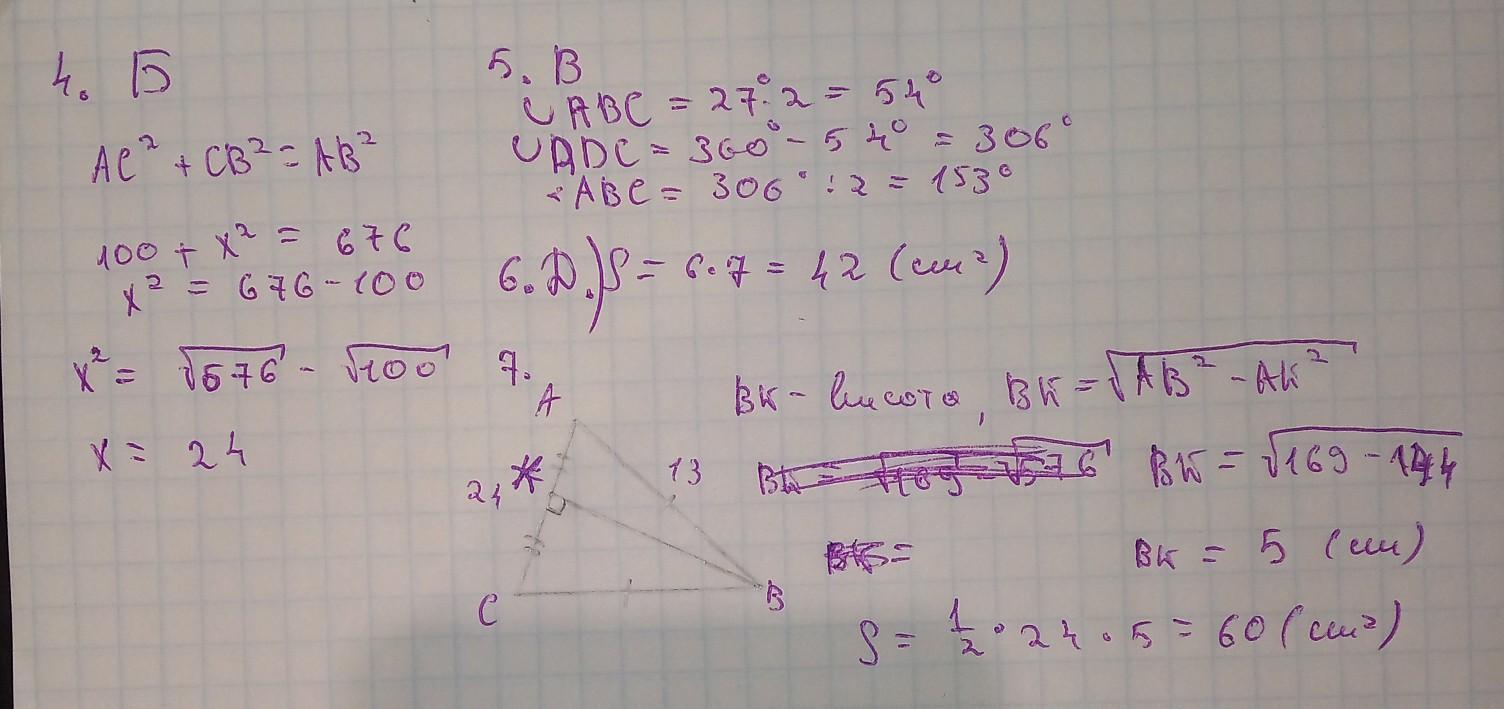 4. Б
AC² + CB² = AB²
100 + x² = 676
x² = 676 - 100
x² = √676 - √100
x = 24
5. В
∪ABC = 27°·2 = 54°
∪ADC = 360° - 54° = 306°
∠ABC = 306° : 2 = 153°
6. Д.) S = 6·7 = 42 (см²)
7.
A
24 K
13
C
B
BK - висота, BK = √AB² - AK²
BK = √169 - √576
BK = √169 - 144
BK =
BK = 5 (см)
S = 1/2 · 24 · 5 = 60 (см²)